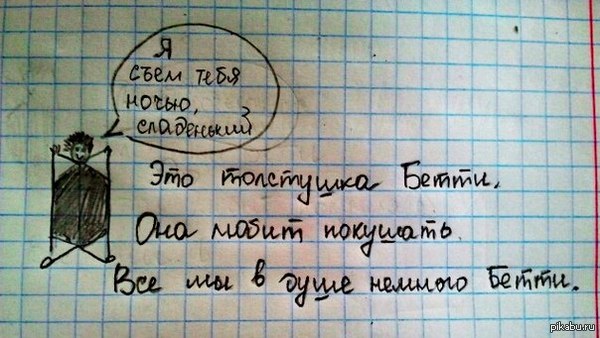 Я
съем тебя
ночью,
сладенький
Это толстушка Бетти.
Она любит покушать.
Все мы в душе немного Бетти.
pikabu.ru